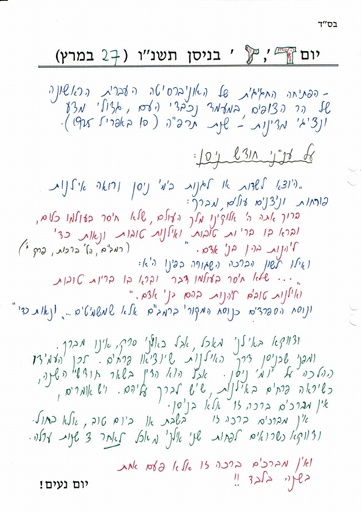 בס"ד
יום ד', ז' בניסן תשנ"ו (27 במרץ)
- הפתיחה החגיגית של האוניברסיטה העברית הראשונה
של הר הצופים במעמד נכבדי העם, גדולי מדע
ונציגי מדינות - שנת תרפ"ה (סו באפריל 1925).
על עניני חודש ניסן:
"היוצא לשדות או לגנות בימי ניסן ורואה אילנות
פורחות וניצנים עולים, מברך:
ברוך אתה ה' אלוקינו מלך העולם, שלא חיסר בעולמו כלום,
וברא בו בריות טובות ואילנות טובות ונאות כדי
ליהנות בהן בני אדם." (רמב"ם, הל' ברכות, פרק י')
ואילו לשון הברכה השגורה בפינו היא:
"... שלא חיסר בעולמו דבר וברא בו בריות טובות
ואילנות טובים להנות בהם בני אדם."
ונוסח הספרדים כנוסח המקורי ברמב"ם אלא שמשמיטים... "ונאות כדי"
ודווקא באילני מאכל, אבל באילני סרק, אינו מברך.
ומפני שבניסן דרך האילנות שיוציאו פרחים. לכן העמידו
ההלכה על "ימי ניסן". אבל הוא הדין בשאר חודשי השנה,
כשיראה פרחים באילנות, שיש לברך עליהם. ויש אומרים,
אין מברכים ברכה זו אלא בניסן.
אין מברכים ברכה זו בשבת או ביום טוב, אלא בחול.
ודווקא כשרואים לפחות שני אילני מאכל לאחר 3 שנות ערלה.
ואין מברכים ברכה זו אלא פעם אחת
בשנה בלבד !!
יום נעים!